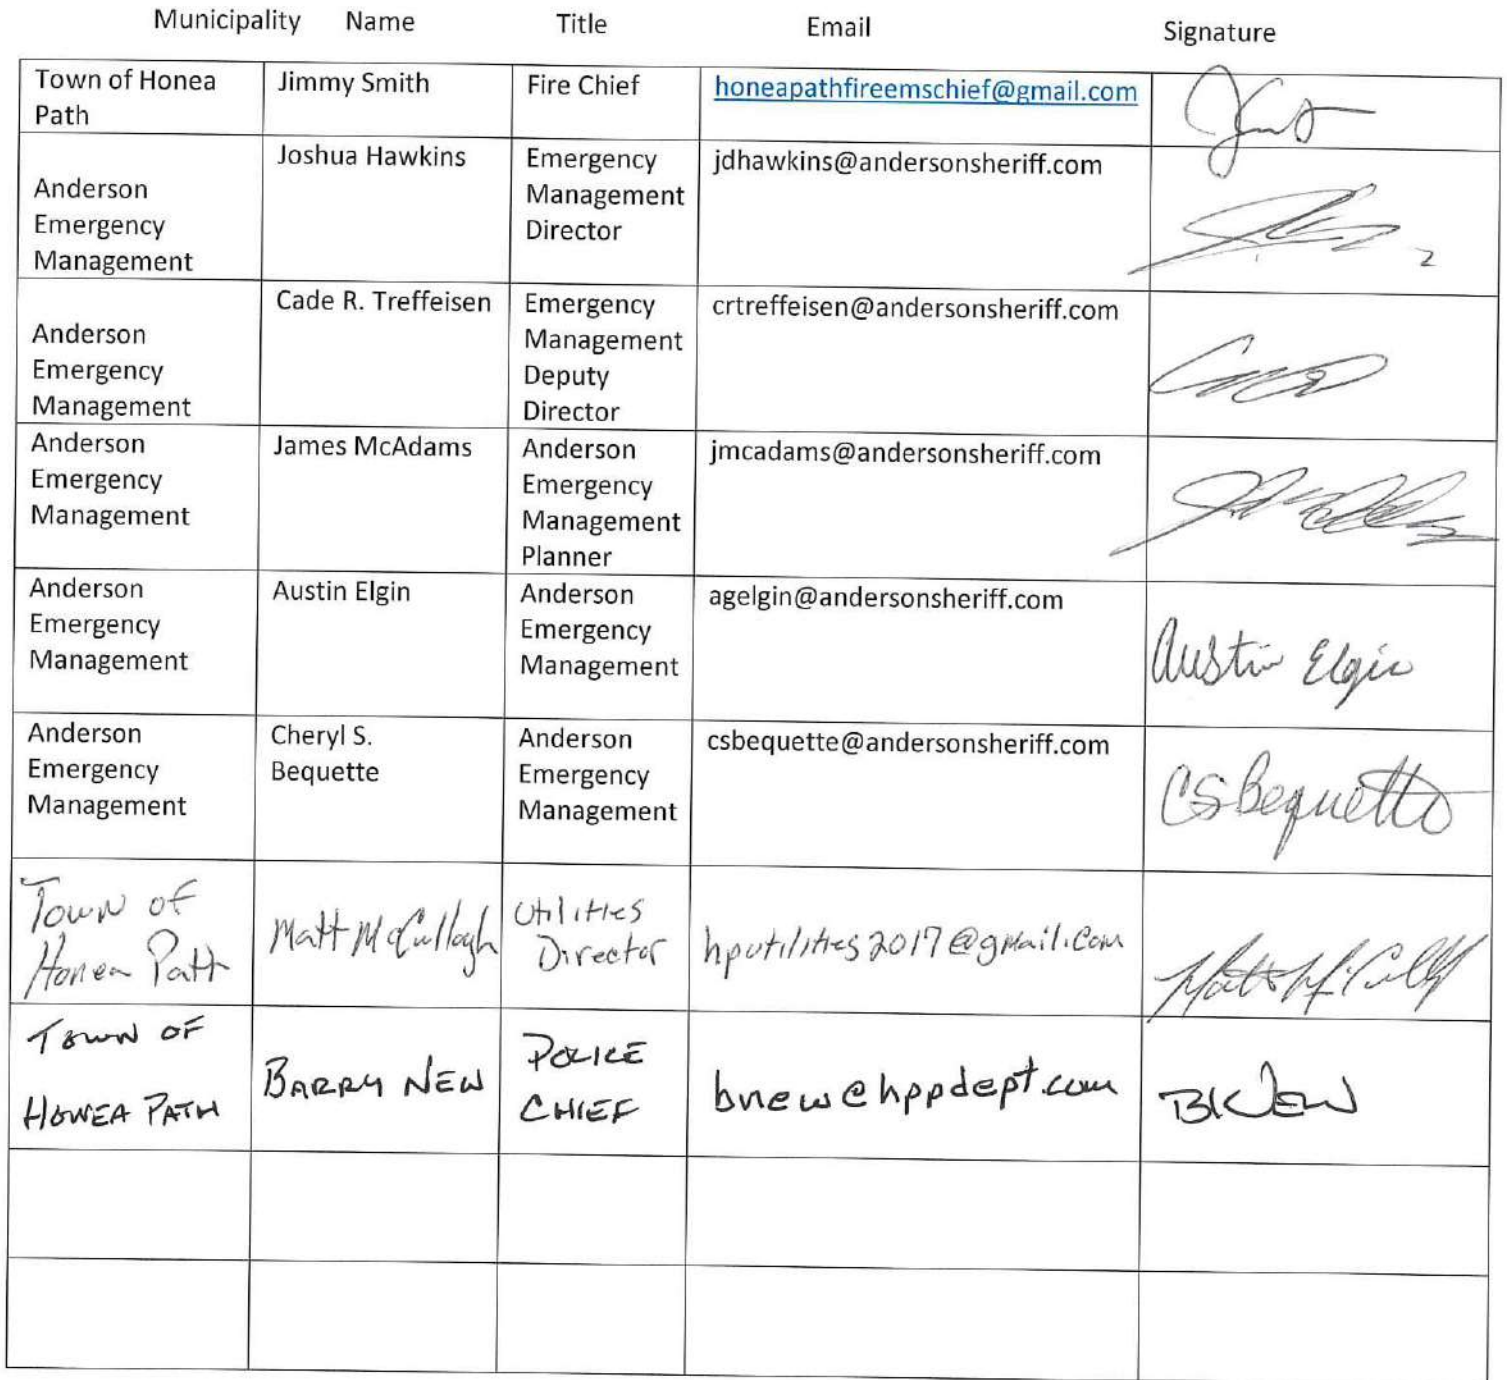 Municipality Name Title Email Signature
Town of Honea Path
Jimmy Smith
Fire Chief
honeapathfireemschief@gmail.com
Anderson
Emergency
Management
Joshua Hawkins
Emergency
Management
Director
jdhawkins@andersonsheriff.com
Anderson
Emergency
Management
Cade R. Treffeisen
Emergency
Management
Deputy
Director
crtreffeisen@andersonsheriff.com
Anderson
Emergency
Management
James McAdams
Anderson
Emergency
Management
Planner
jmcadams@andersonsheriff.com
Anderson
Emergency
Management
Austin Elgin
Anderson
Emergency
Management
agelgin@andersonsheriff.com
Austin Elgin
Anderson
Emergency
Management
Cheryl S.
Bequette
Anderson
Emergency
Management
csbequette@andersonsheriff.com
CSBequette
Town of
Honea Path
Matt McCullogh
Utilities
Director
hputilities2017@gmail.com
TOWN OF
HONEA PATH
BARRY NEW
POLICE
CHIEF
bnew@hppdept.com
BKNEW